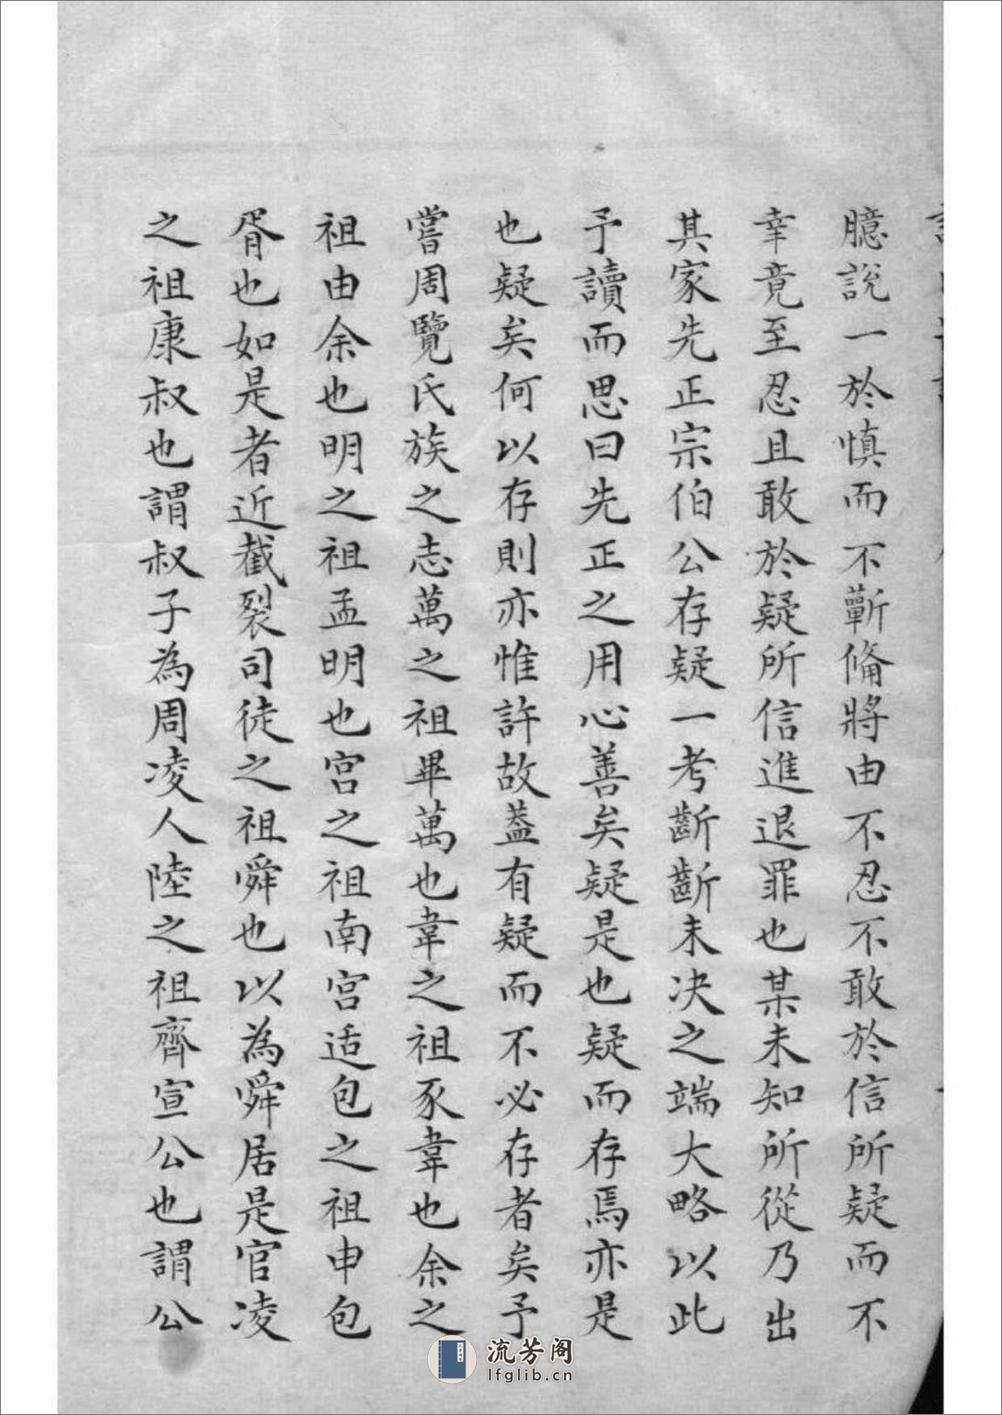 臆說一於慎而不蘄俻將由不忍不敢於信所疑而不
幸竟至忍且敢於疑所信進退罪也某未知所從乃出
其家先正宗伯公存疑一考斷斷未决之端大略以此
予讀而思曰先正之用心善矣疑是也疑而存焉亦是
也疑矣何以存則亦惟許故葢有疑而不必存者矣予
嘗周覽氏族之志萬之祖畢萬也韋之祖豕韋也余之
祖由余也明之祖孟明也宫之祖南宫适包之祖申包
胥也如是者近截裂司徒之祖舜也以為舜居是官凌
之祖康叔也謂叔子為周凌人陸之祖齊宣公也謂公
流芳阁
lfglib.cn